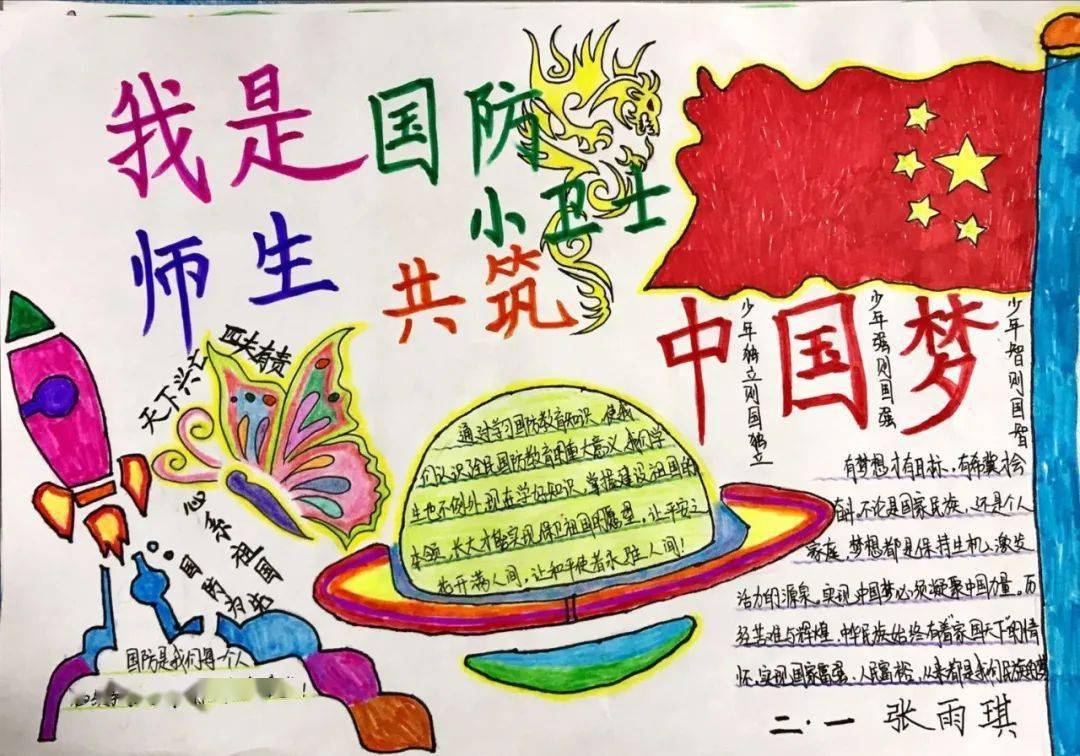 我是国防
小卫士
师生
共筑
中国梦
少年独立则国独立
少年强则国强
少年智则国智
天下兴亡
匹夫有责
心系祖国
国防有我
通过学习国防教育知识,使我
们认识
国防教育的重大意义,我们学
生也不例外,现在学好知识,掌握建设祖国的
本领,长大才能实现保卫祖国的愿望,让平安之
花开满人间,让和平使者永驻人间!
有梦想才有目标,有希冀才会
奋斗,不论是国家民族,还是个人
家庭,梦想都是保持生机、激发
活力的源泉,实现中国梦必须凝聚中国力量。历
经苦难与辉煌,中华民族始终有着家国天下的情
怀,实现国家富强、人民富裕,从来都是我们民族的梦
国防是我们每个人
二·一 张雨琪